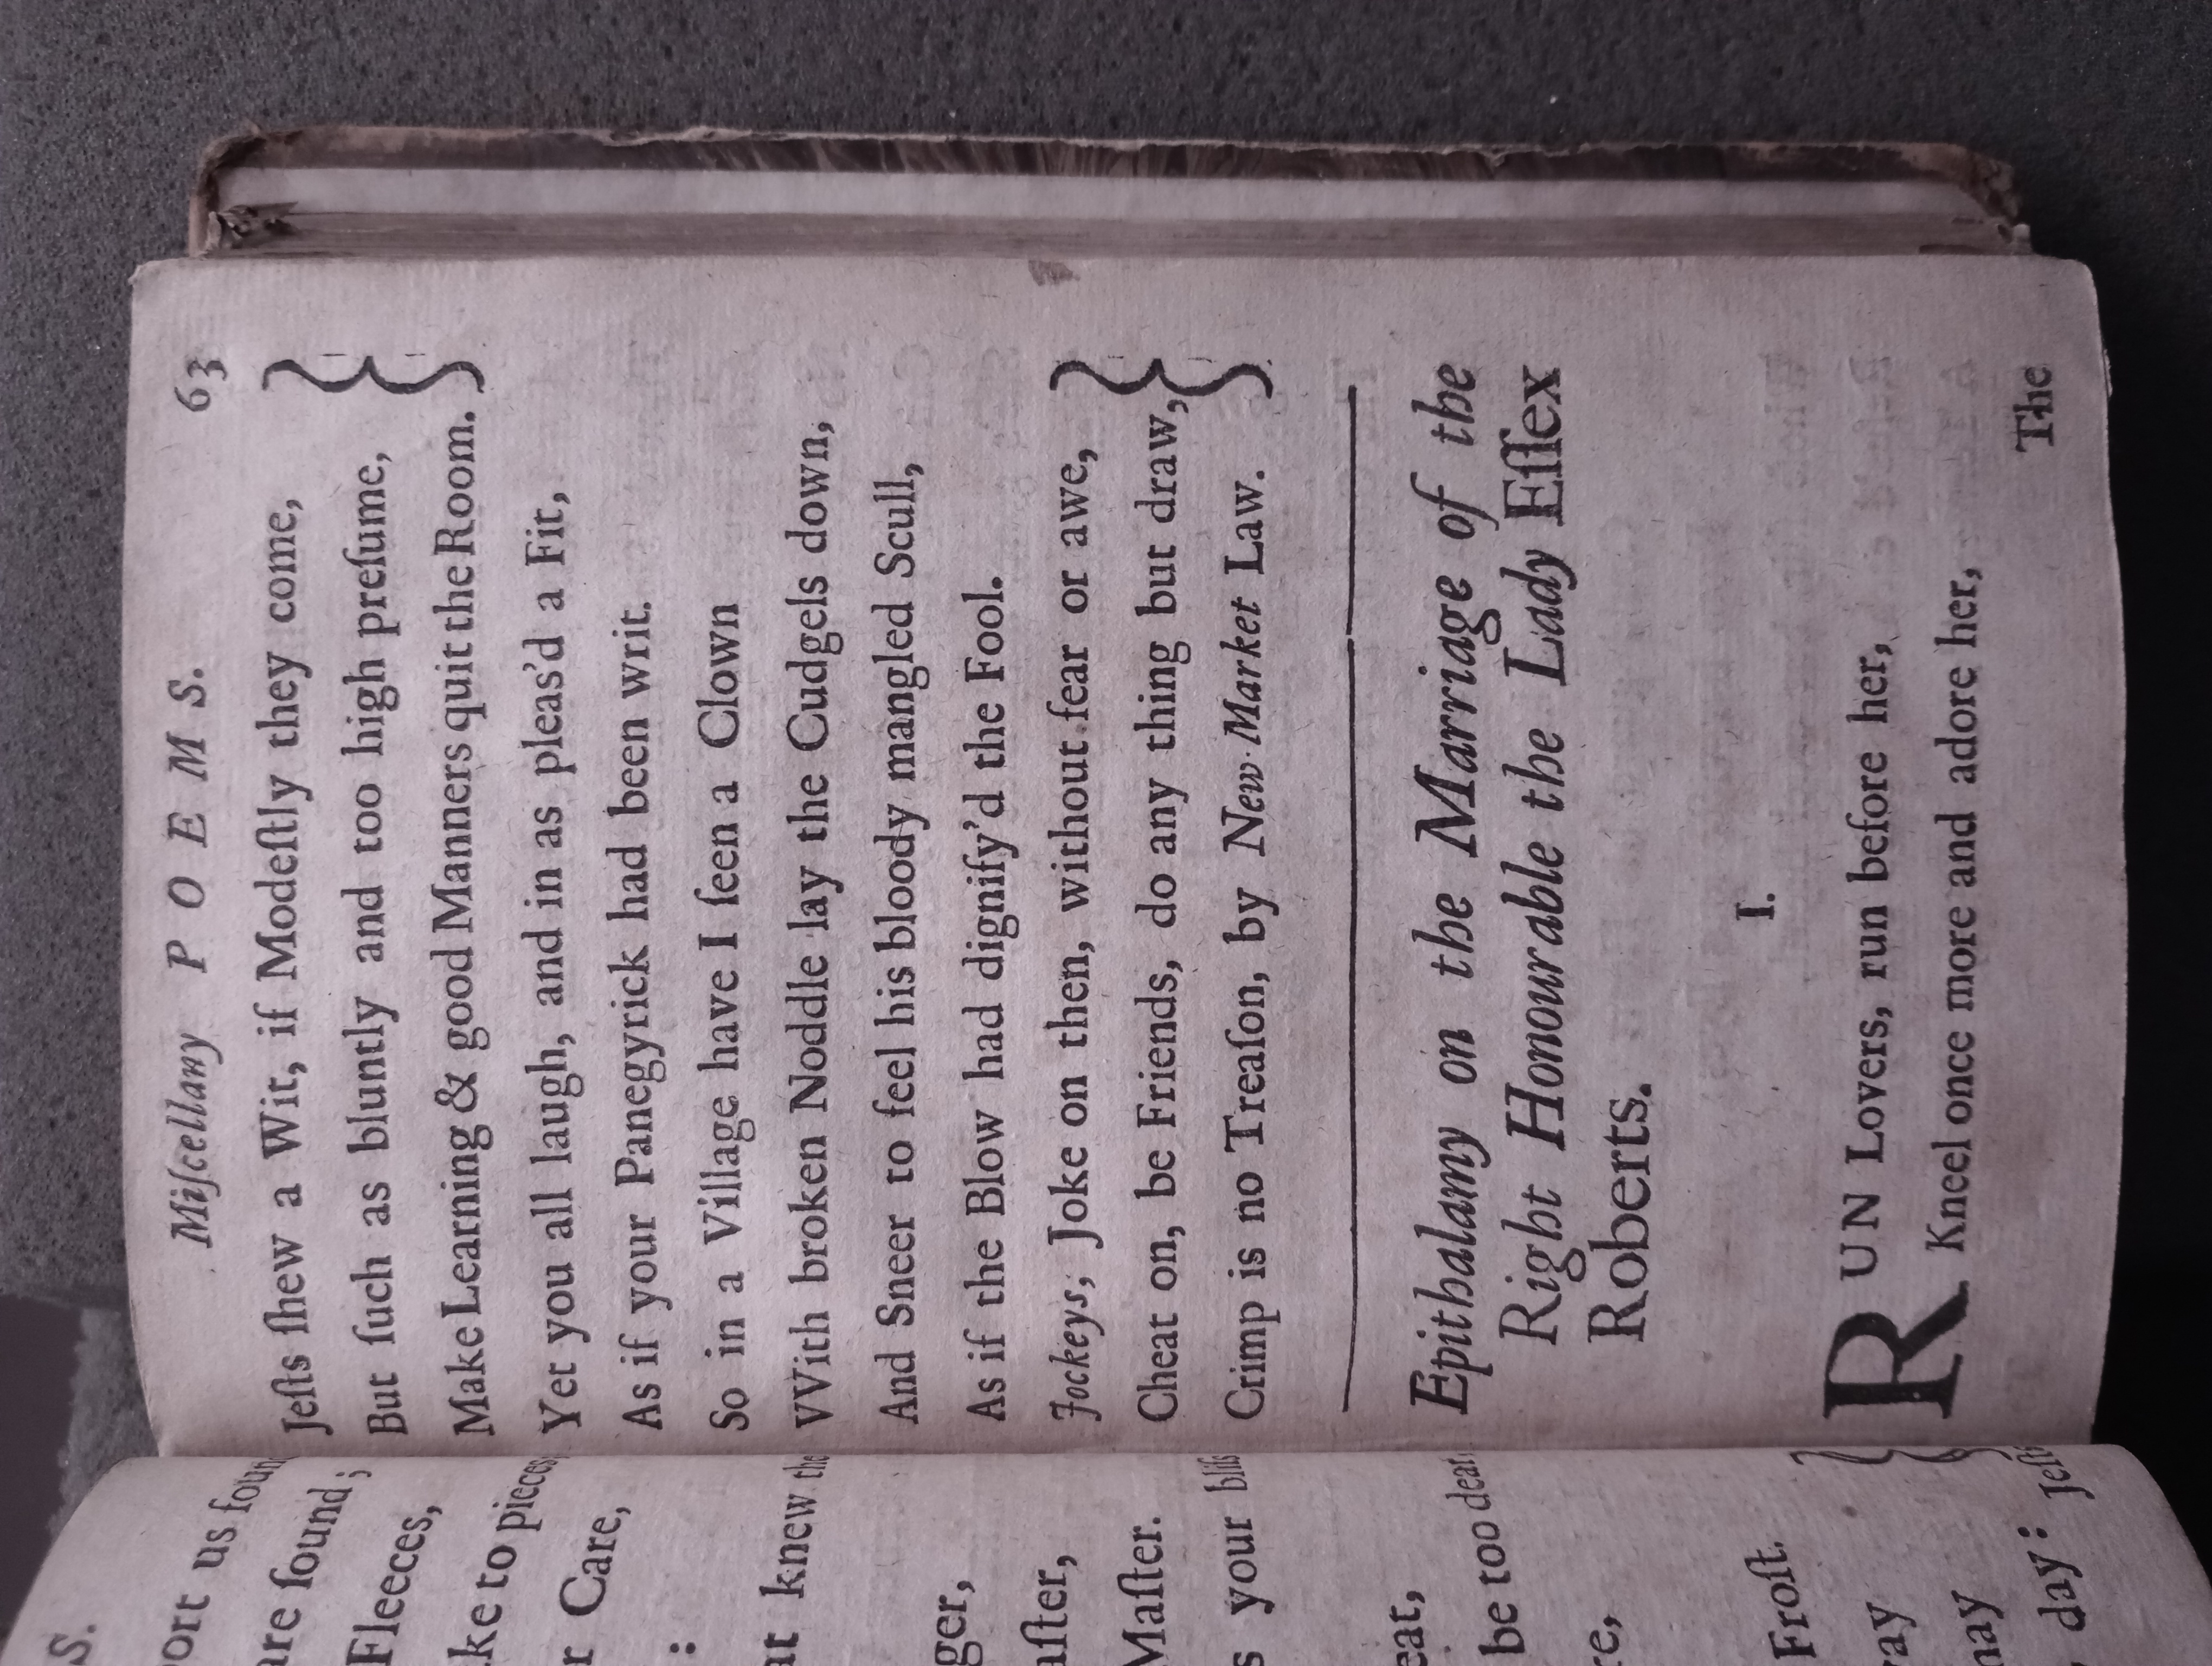 S.
port us foun
are found;
Fleeces,
ke to pieces
r Care,
:
at knew the
ger,
aſter,
Maſter.
s your bliſs
eat,
be too dear
re,
Froſt.
vay
may
day:
Jeſts
Miſcellany POEMS. 63
Jeſts ſhew a Wit, if Modeſtly they come,
But ſuch as bluntly and too high preſume,
Make Learning & good Manners quit the Room.
Yet you all laugh, and in as pleas'd a Fit,
As if your Panegyrick had been writ.
So in a Village have I ſeen a Clown
VVith broken Noddle lay the Cudgels down,
And Sneer to feel his bloody mangled Scull,
As if the Blow had dignify'd the Fool.
Jockeys, Joke on then, without fear or awe,
Cheat on, be Friends, do any thing but draw,
Crimp is no Treaſon, by New-Market Law.
Epithalamy on the Marriage of the
Right Honourable the Lady Eſſex
Roberts.
I.
RUN Lovers, run before her,
Kneel once more and adore her,
The